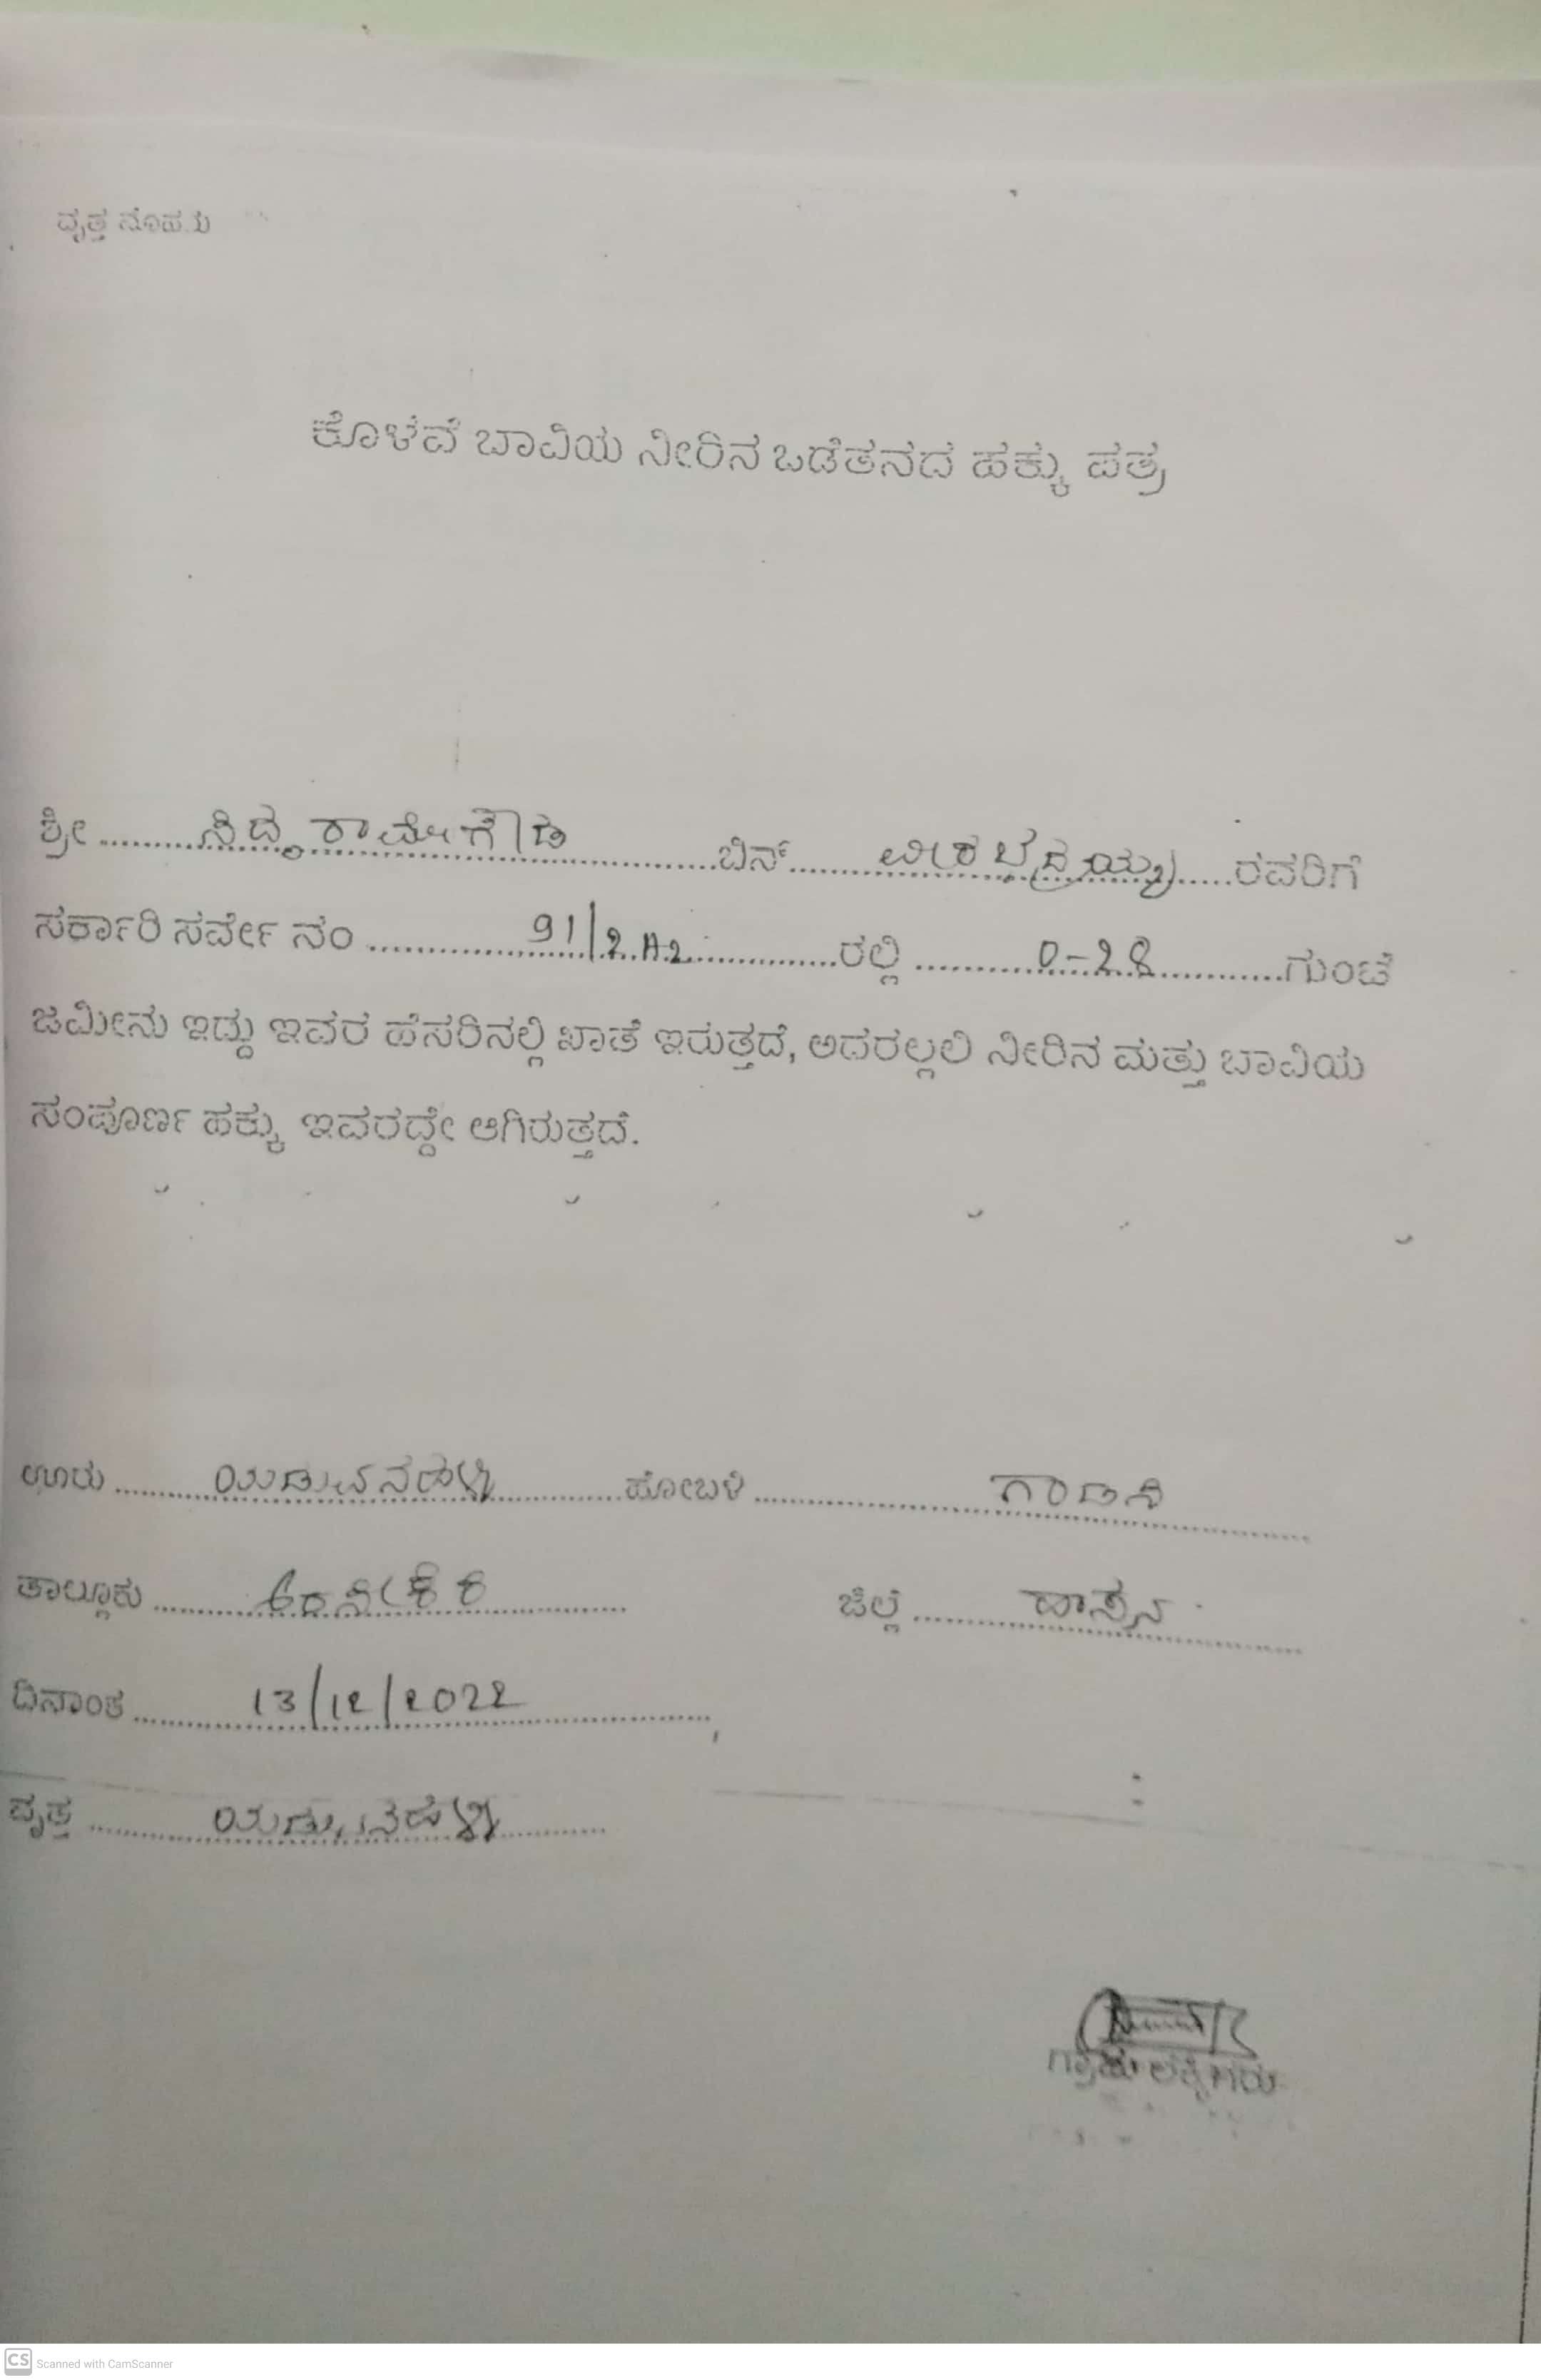 ವೃತ್ತ ಮೊಹರು
ಕೊಳವೆ ಬಾವಿಯ ನೀರಿನ ಒಡೆತನದ ಹಕ್ಕು ಪತ್ರ
ಶ್ರೀ..........ಸಿದ್ದರಾಮೇಗೌಡ..........ಬಿನ್......ವೀರಭದ್ರಯ್ಯ......ರವರಿಗೆ
ಸರ್ಕಾರಿ ಸರ್ವೇ ನಂ ..........91/2A2..........ರಲ್ಲಿ ..........0-28..........ಗುಂಟೆ
ಜಮೀನು ಇದ್ದು ಇವರ ಹೆಸರಿನಲ್ಲಿ ಖಾತೆ ಇರುತ್ತದೆ, ಅದರಲ್ಲಲಿ ನೀರಿನ ಮತ್ತು ಬಾವಿಯ
ಸಂಪೂರ್ಣ ಹಕ್ಕು ಇವರದ್ದೇ ಆಗಿರುತ್ತದೆ.
ಊರು..........ಯಡುವನಹಳ್ಳಿ..........ಹೋಬಳಿ..........ಗಂಡಸಿ..........
ತಾಲ್ಲೂಕು..........ಅರಸೀಕೆರೆ.......... ಜಿಲ್ಲೆ..........ಹಾಸನ..........
ದಿನಾಂಕ..........13/12/2022..........
ವೃತ್ತ..........ಯಡುವನಹಳ್ಳಿ..........
CS Scanned with CamScanner